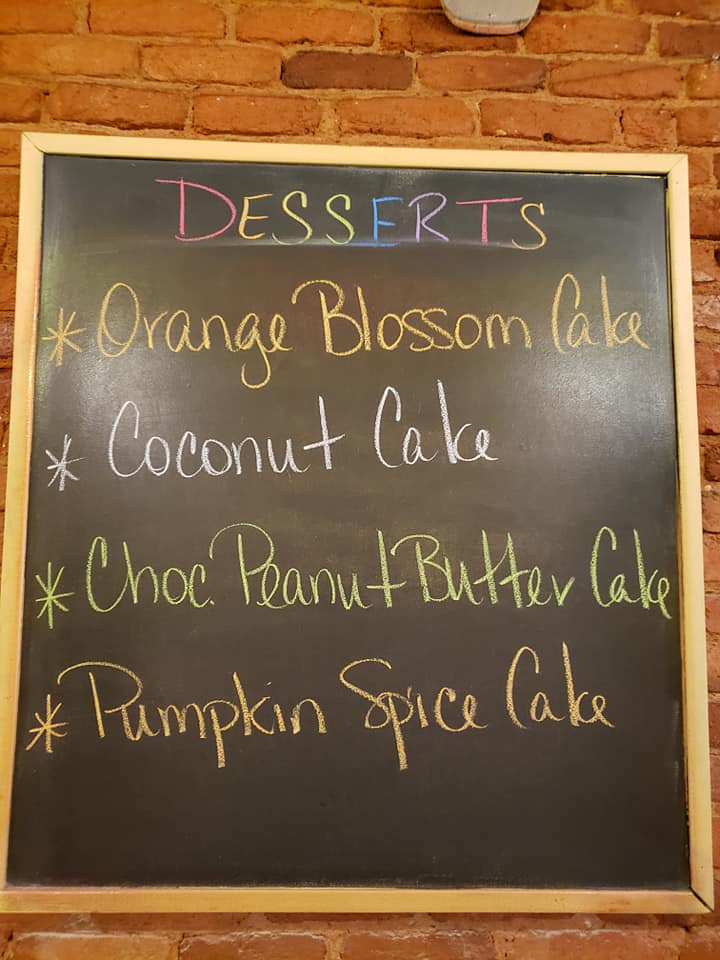 DESSERTS
* Orange Blossom Cake
* Coconut Cake
* Choc. Peanut Butter Cake
* Pumpkin Spice Cake